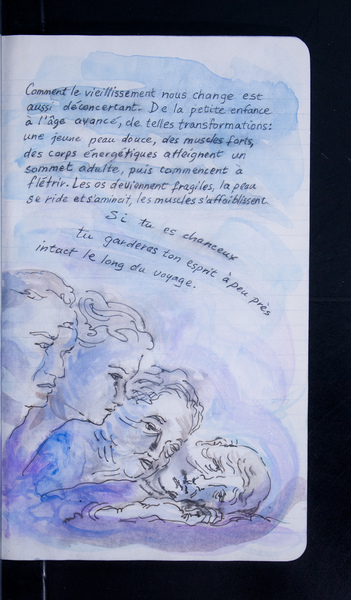 Comment le vieillissement nous change est
aussi déconcertant. De la petite enfance
à l'âge avancé, de telles transformations:
une jeune peau douce, des muscles forts,
des corps énergétiques atteignent un
sommet adulte, puis commencent à
flétrir. Les os deviennent fragiles, la peau
se ride et s'amincit, les muscles s'affaiblissent.
Si tu es chanceux
tu garderas ton esprit à peu près
intact le long du voyage.